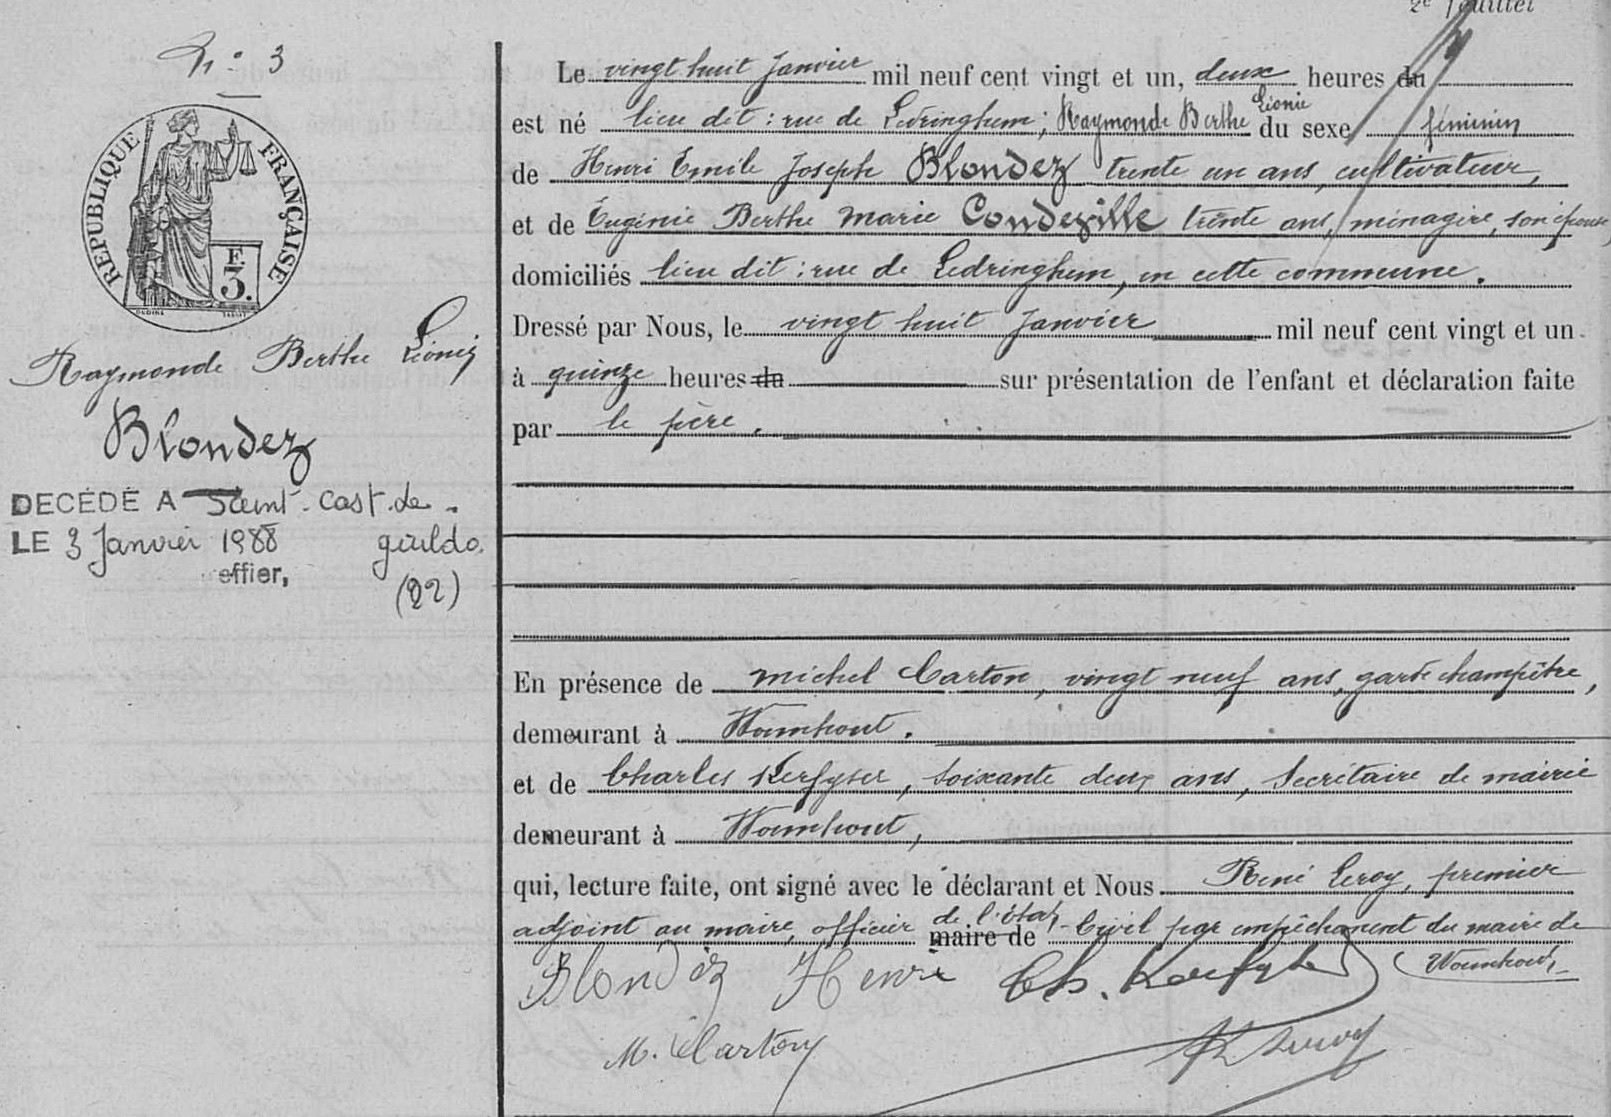 2e feuillet
N° 3
RÉPUBLIQUE FRANÇAISE
F.
3.
Raymonde Berthe Léonie
Blondez
DECÉDÉ A Saint-Cast-le-
LE 3 Janvier 1988 guildo.
effier,
(22)
Le vingt huit Janvier mil neuf cent vingt et un, deux heures du
est né lieu dit : rue de Ledringhem ; Raymonde Berthe Léonie du sexe féminin
de Henri Emile Joseph Blondez trente un ans, cultivateur,
et de Eugénie Berthe Marie Condeville trente ans, ménagère, son épouse,
domiciliés lieu dit : rue de Ledringhem, en cette commune.
Dressé par Nous, le vingt huit Janvier mil neuf cent vingt et un
à quinze heures du sur présentation de l'enfant et déclaration faite
par le père.
En présence de Michel Carton, vingt neuf ans, garde champêtre,
demeurant à Wormhout.
et de Charles Kerfyser, soixante deux ans, Secrétaire de mairie
demeurant à Wormhout,
qui, lecture faite, ont signé avec le déclarant et Nous René Leroy, premier
adjoint au maire, officier maire de de l'état-Civil par empêchement du maire de
Wormhout,
Blondez Henri Ch. Kerfyser
M. Carton R Leroy